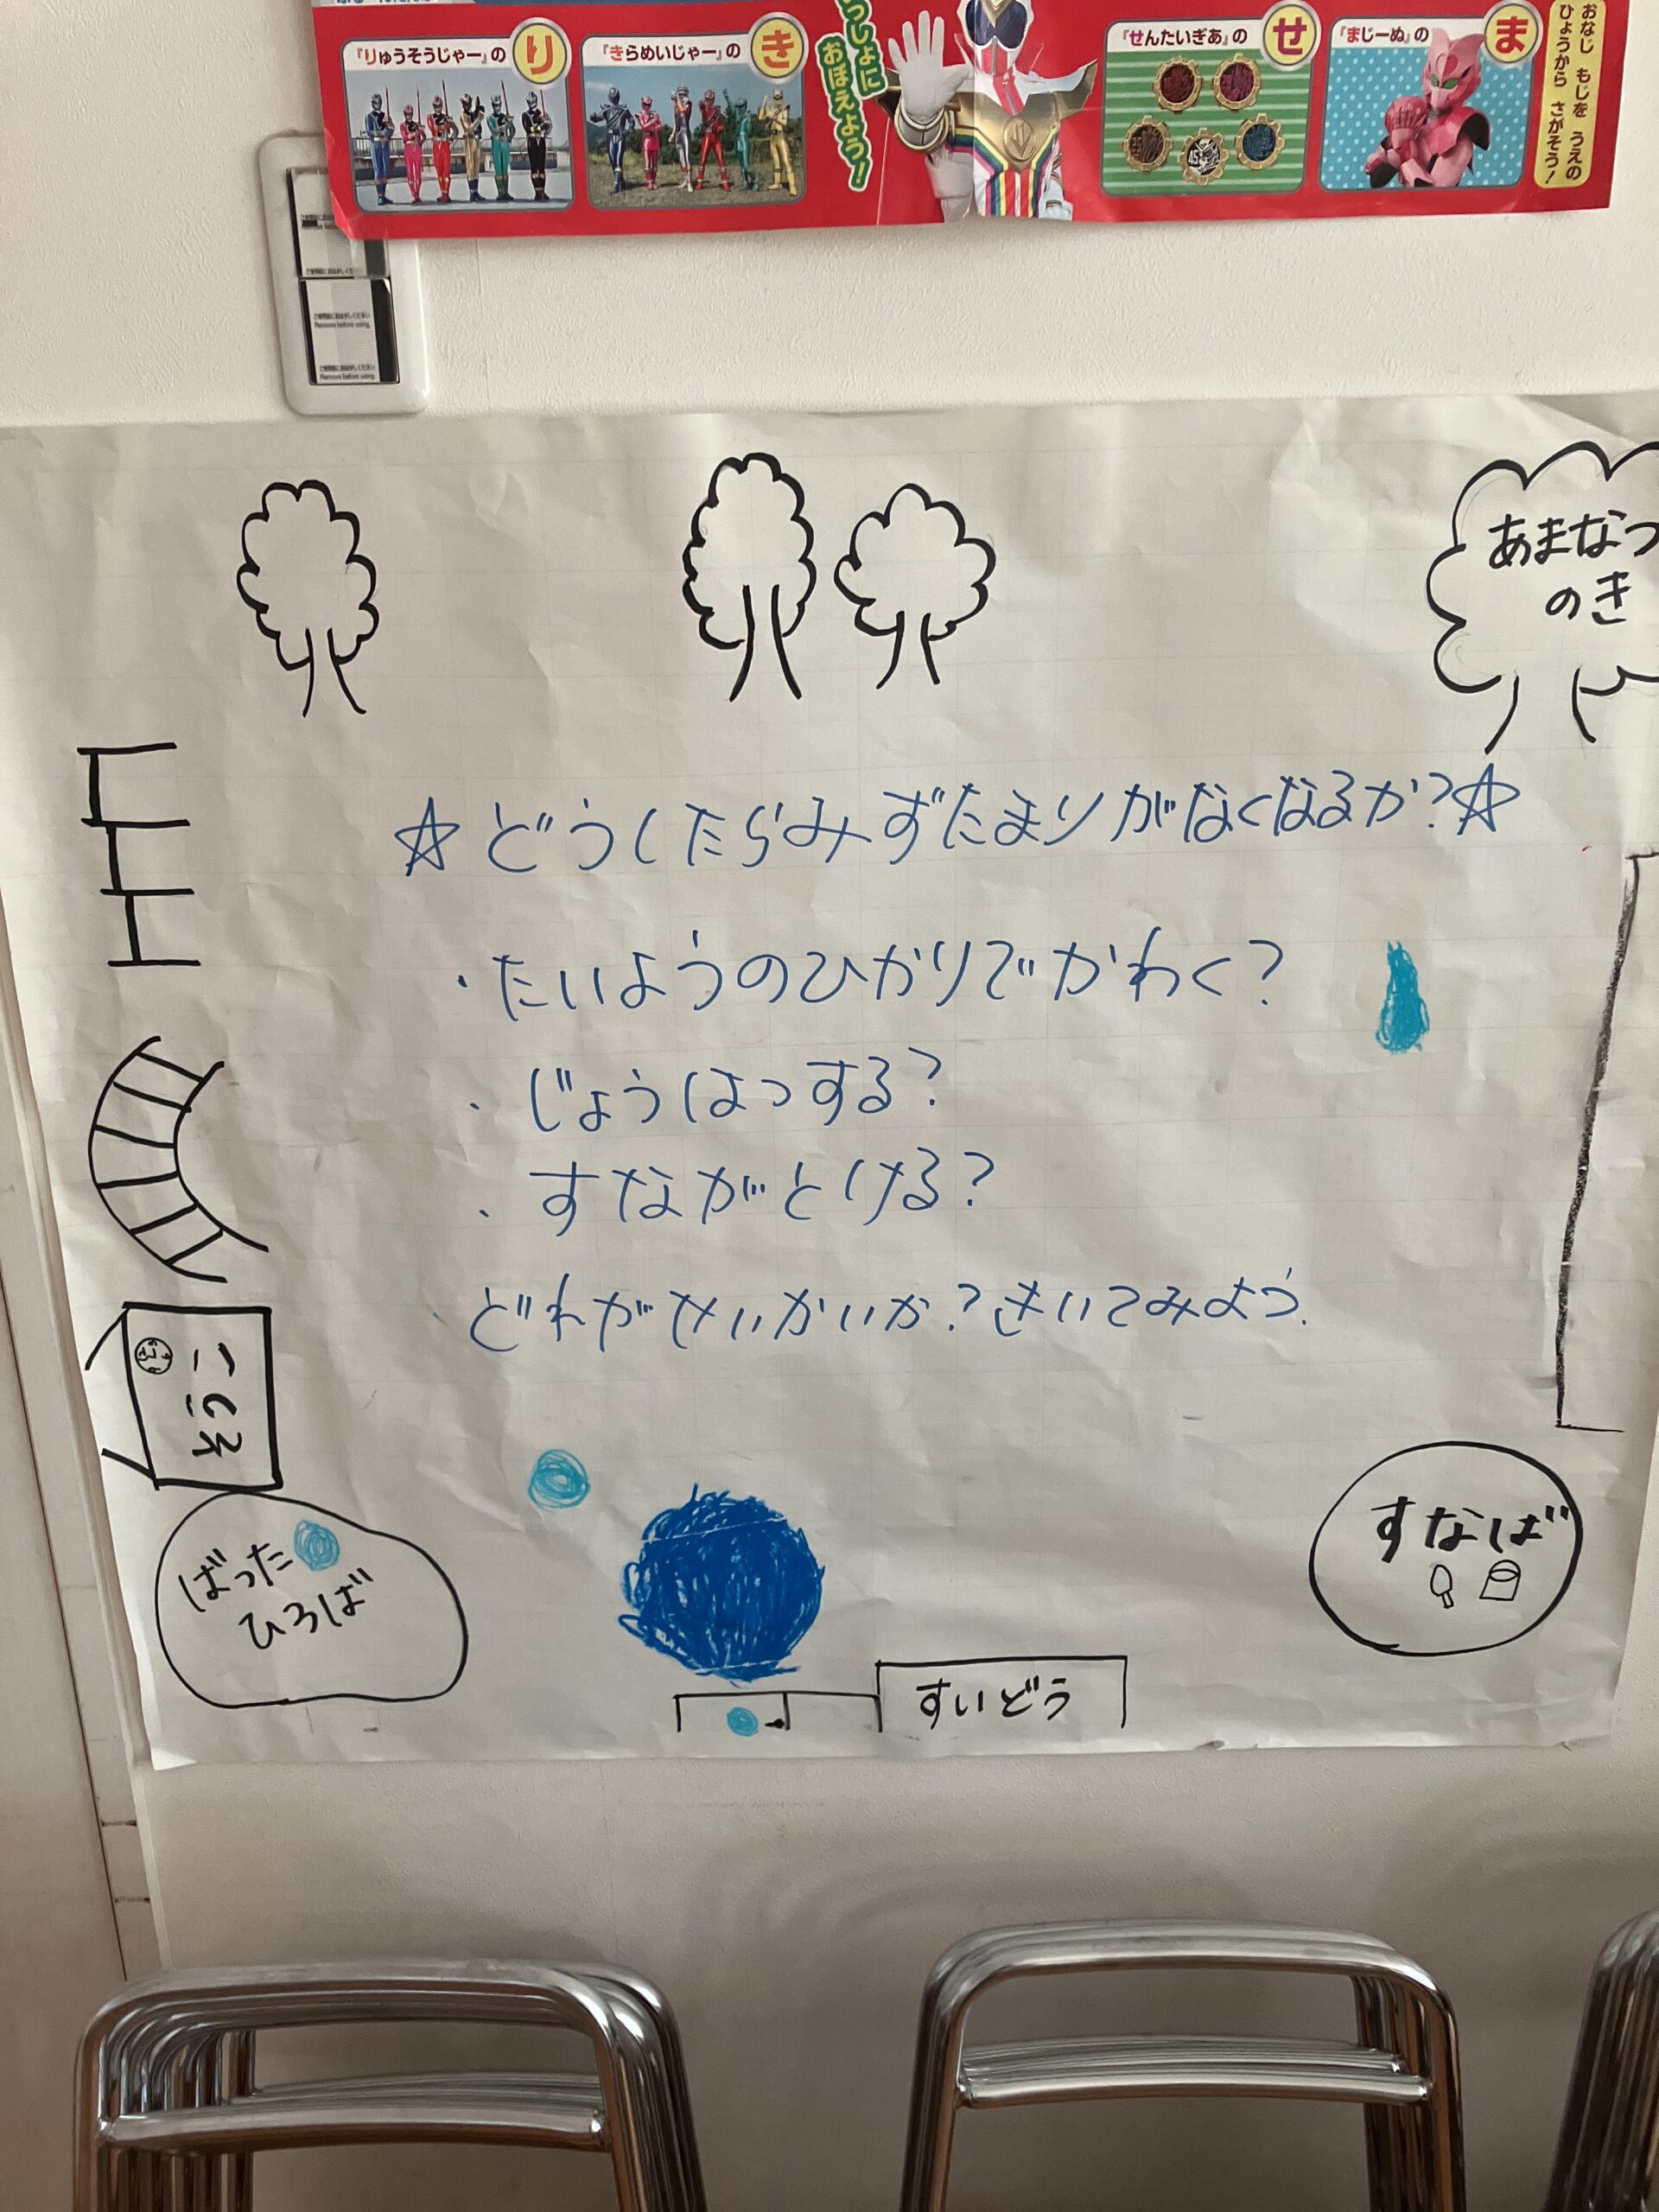 『りゅうそうじゃー』の り
『きらめいじゃー』の き
おぼえよう!
『せんたいぎあ』の せ
『まじーぬ』の ま
おなじ もじを うえの
ひょうから さがそう!
Remove before using.
Remove before using.
あまなつ
のき
☆どうしたらみずたまりがなくなるか?☆
・たいようのひかりでかわく?
・じょうはつする?
・すながとける?
どれがせいかいか?きいてみよう.
ばった
ひろば
すなば
すいどう